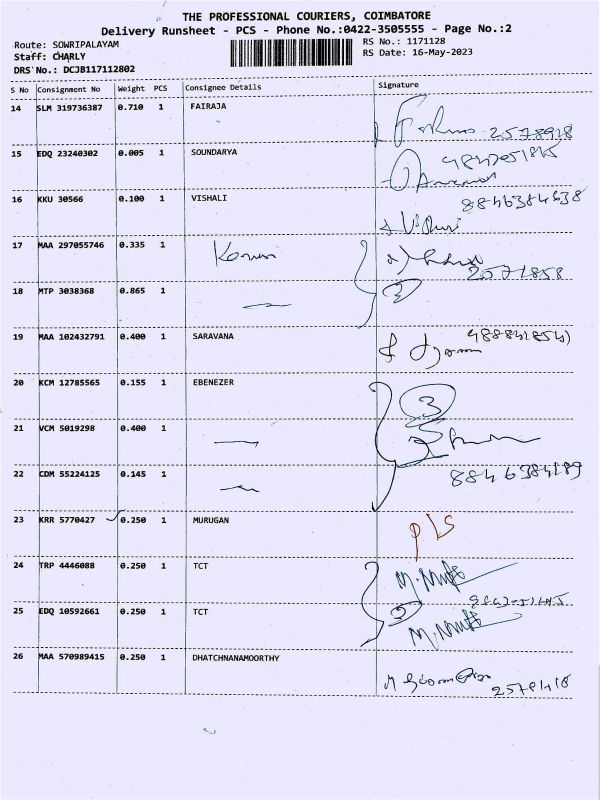 THE PROFESSIONAL COURIERS, COIMBATORE
Delivery Runsheet - PCS - Phone No.:0422-3505555 - Page No.:2
Route: SOWRIPALAYAM
RS No.: 1171128
Staff: CHARLY
RS Date: 16-May-2023
DRS No.: DCJB117112802
S No Consignment No Weight PCS Consignee Details Signature
14 SLM 319736387 0.710 1 FAIRAJA
2578918
15 EDQ 23240302 0.005 1 SOUNDARYA
16 KKU 30566 0.100 1 VISHALI
8846384638
17 MAA 297055746 0.335 1
2571858
18 MTP 3038368 0.865 1 2
19 MAA 102432791 0.400 1 SARAVANA
20 KCM 12785565 0.155 1 EBENEZER 3
21 VCM 5019298 0.400 1
22 CDM 55224125 0.145 1
8846384189
23 KRR 5770427 0.250 1 MURUGAN
24 TRP 4446088 0.250 1 TCT
25 EDQ 10592661 0.250 1 TCT 2
26 MAA 570989415 0.250 1 DHATCHNANAMOORTHY